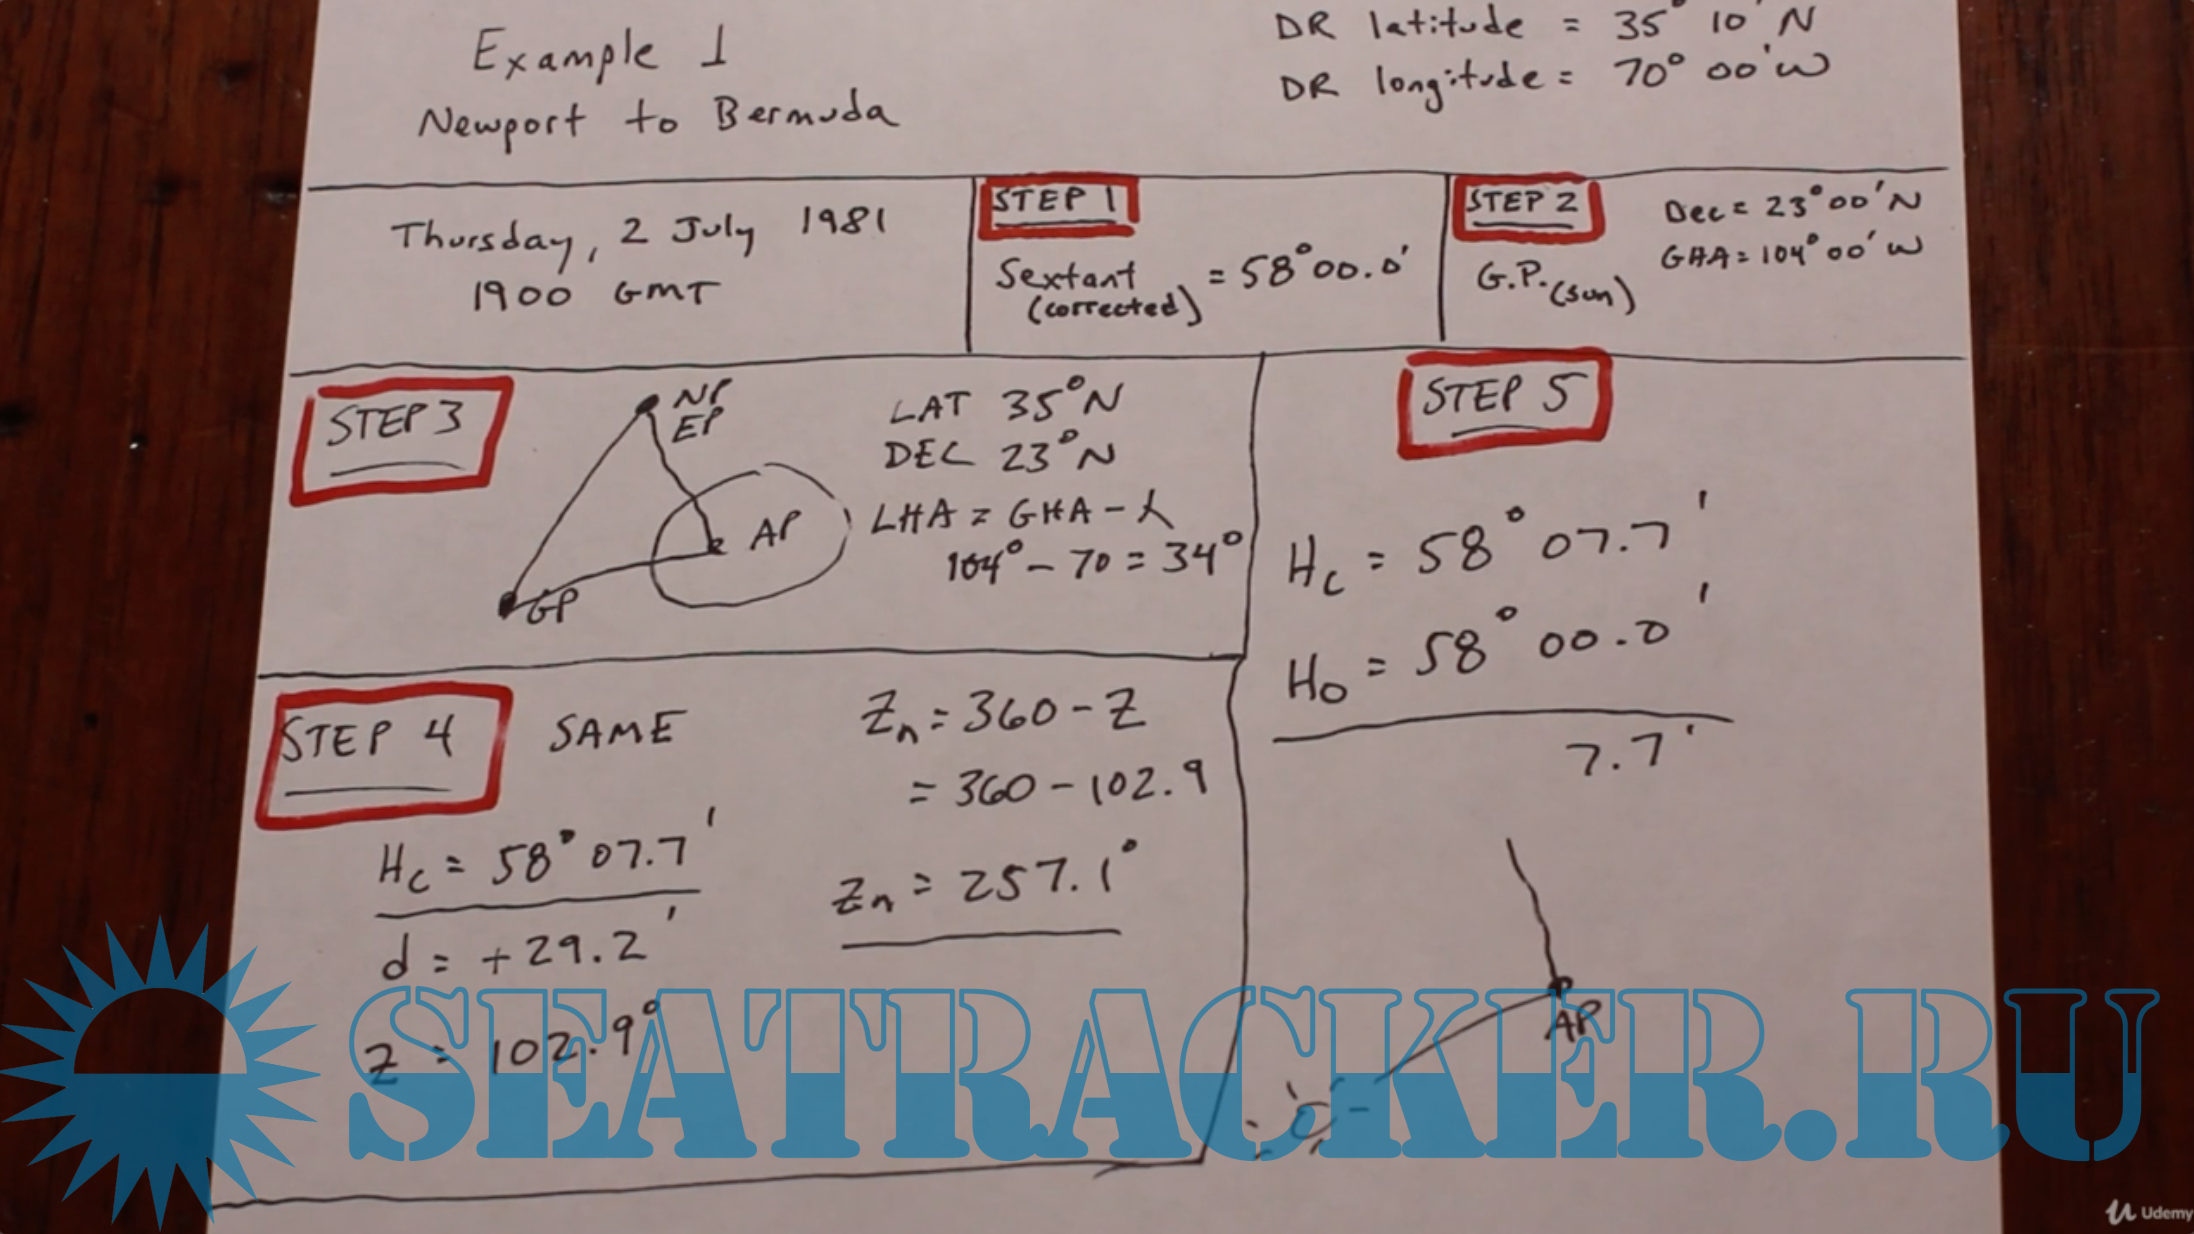 Example 1
Newport to Bermuda
DR latitude = 35° 10' N
DR longitude = 70° 00' W
Thursday, 2 July 1981
1900 GMT
STEP 1
Sextant (corrected) = 58° 00.0'
STEP 2
Dec = 23° 00' N
GHA = 104° 00' W
G.P. (sun)
STEP 3
NP
EP
AP
GP
LAT 35° N
DEC 23° N
LHA = GHA - λ
104° - 70 = 34°
STEP 4
SAME
Hc = 58° 07.7'
d = +29.2'
Z = 102.9°
Zn = 360 - Z
= 360 - 102.9
Zn = 257.1°
STEP 5
Hc = 58° 07.7'
Ho = 58° 00.0'
7.7'
AP
SEATRACKER.RU
Udemy